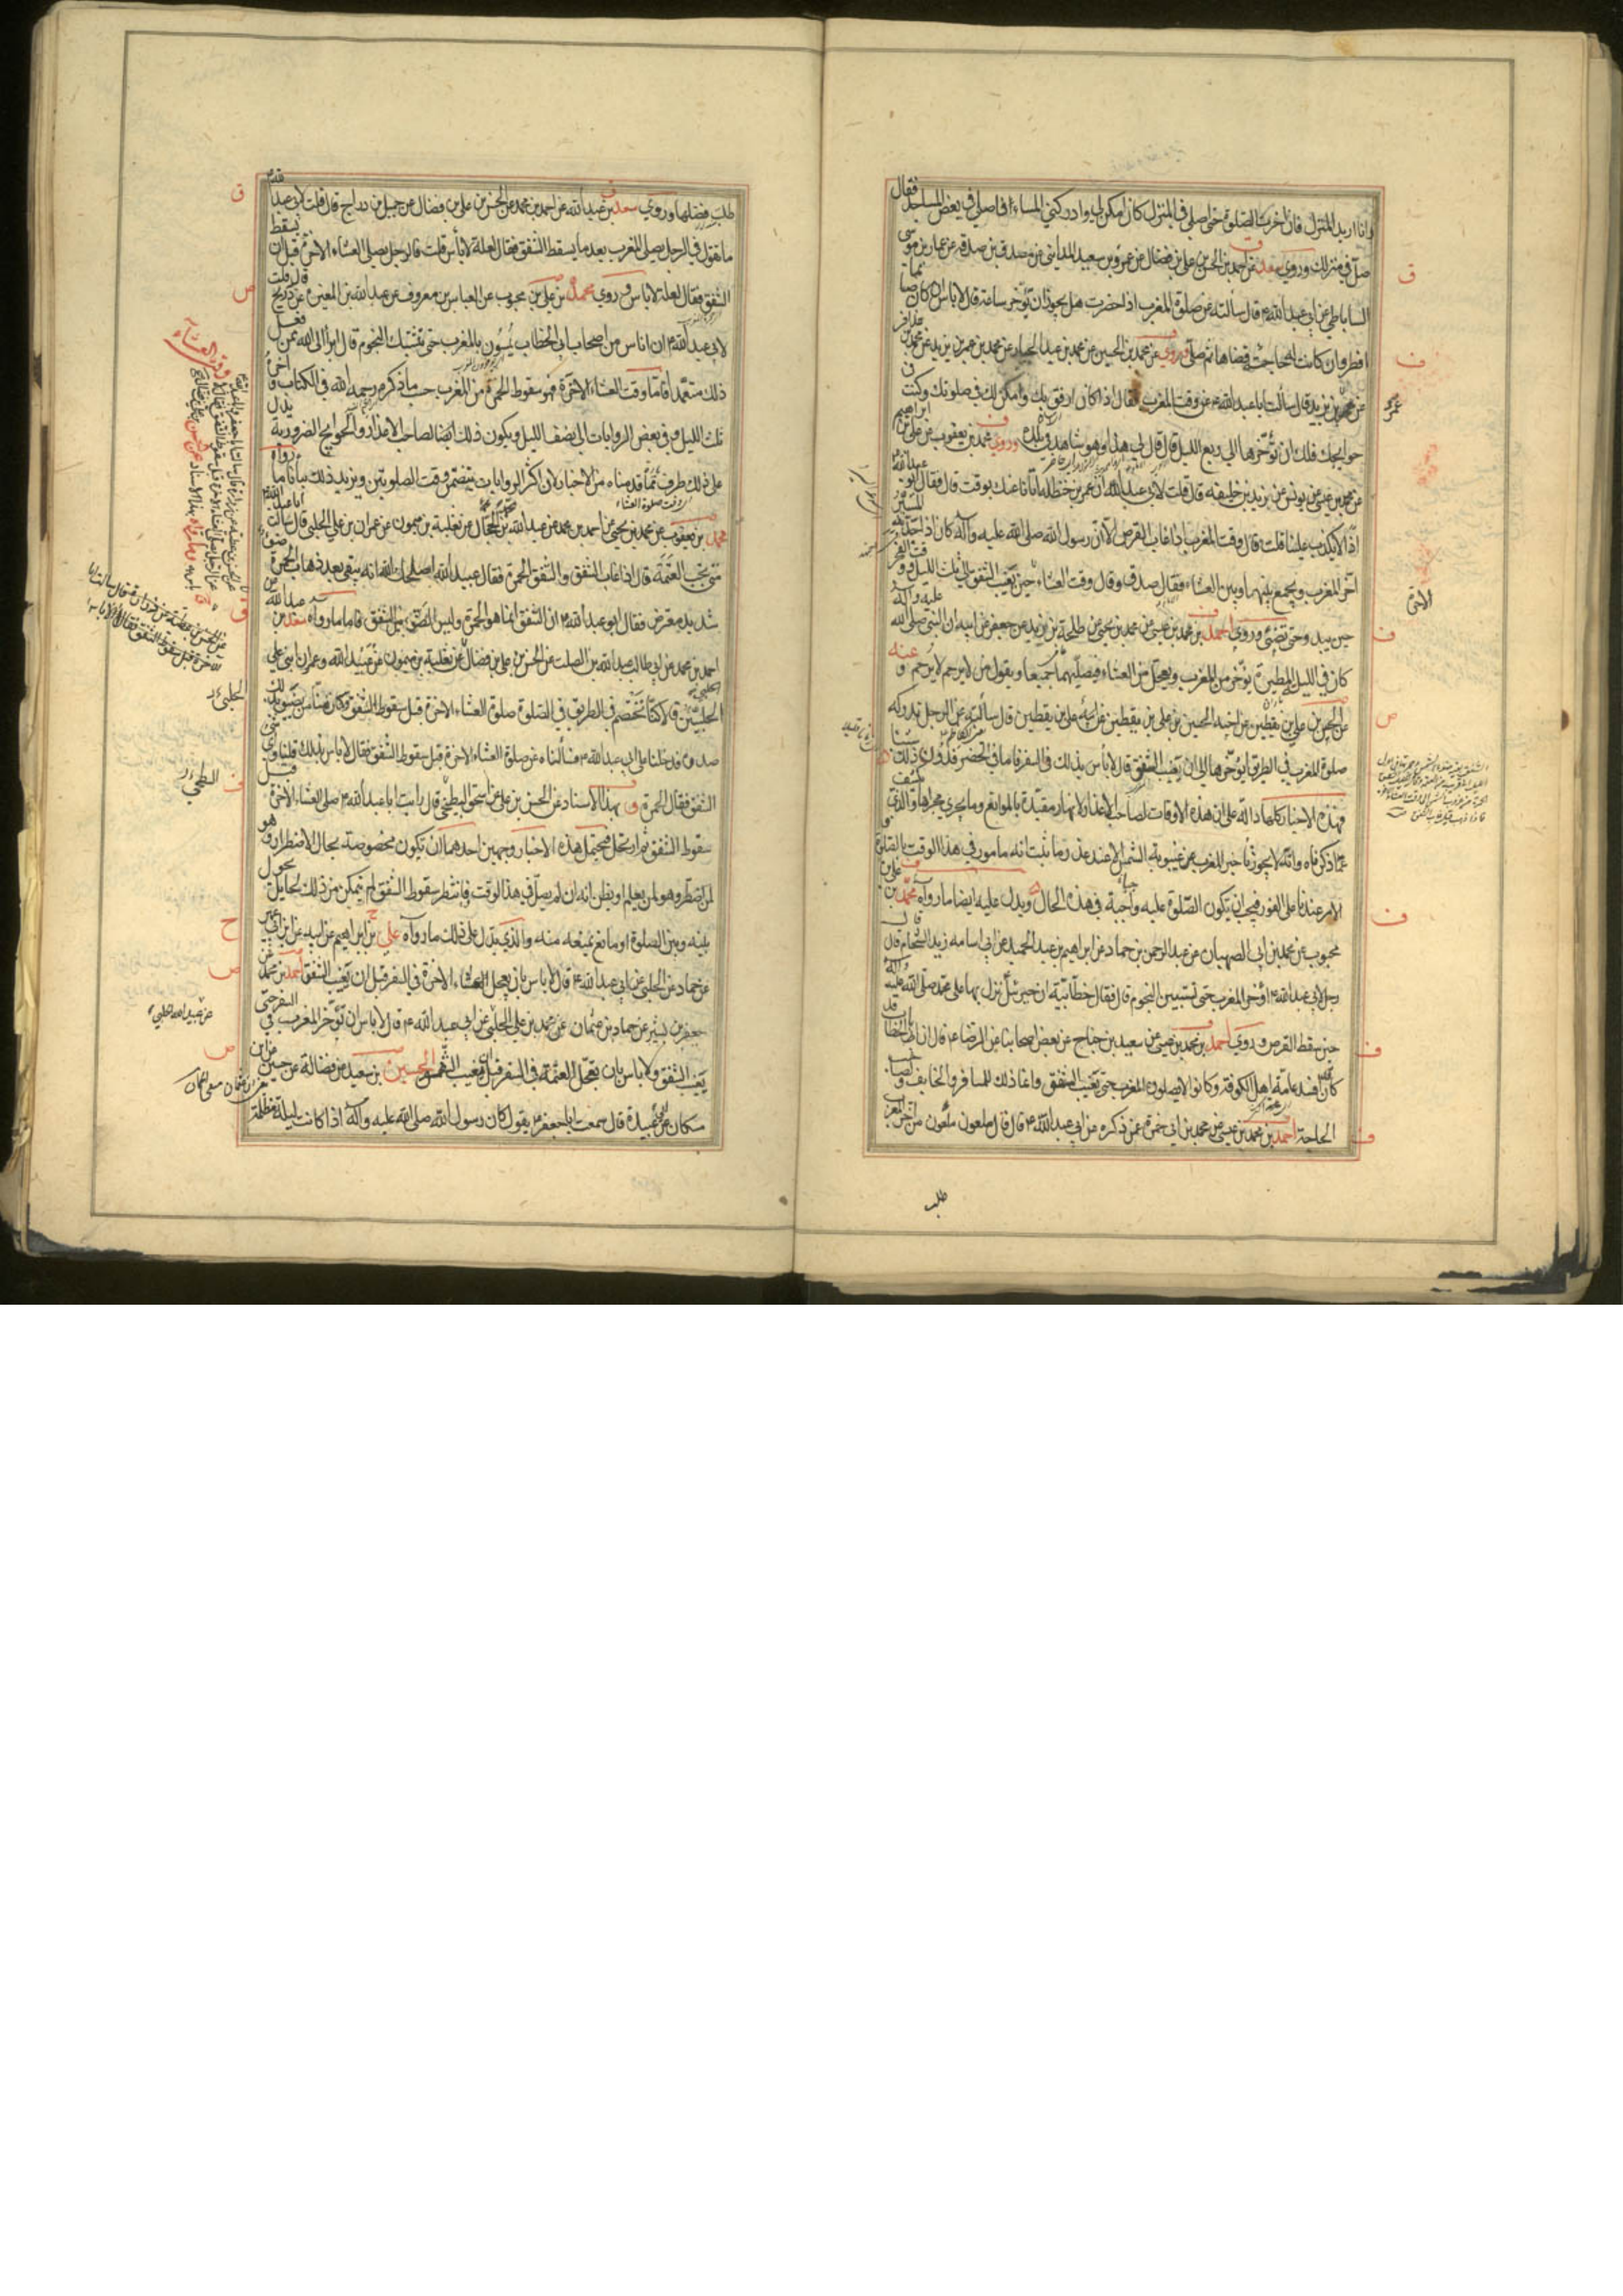 وانا اريد المنزل فان اخرت الصلوة حتى اصلي في المنزل كان امكن لي وادركني المساء افاصلي في بعض المساجد فقال
صل في منزلك وروى سعد عن احمد بن الحسن بن علي بن فضال عن عمرو بن سعيد المدايني عن مصدق بن صدقه عن عمار بن موسى
الساباطي عن ابي عبد الله ع قال سالته عن صلوة المغرب اذا حضرت هل يجوز ان تؤخر ساعة قال لا باس ان كان صائما
افطر وان كانت له حاجة قضاها ثم صلى وروى عن محمد بن الحسين عن محمد بن عبد الجبار عن محمد بن عمر بن يزيد عن محمد بن عذافر
عن عمر بن يزيد قال سالت ابا عبد الله ع عن وقت المغرب فقال اذا كان ارفق بك وامكن لك في صلوتك وكنت في
حوايجك فلك ان تؤخرها الى ربع الليل قال قال لي هذا وهو شاهد في بلده وروى محمد بن يعقوب عن علي بن ابراهيم
عن محمد بن عيسى عن يونس عن يزيد بن خليفه قال قلت لابي عبد الله ان عمر بن حنظلة اتانا عنك بوقت قال فقال ابو عبد الله ع
اذا لا يكذب علينا قلت قال وقت المغرب اذا غاب القرص الا ان رسول الله صلى الله عليه وآله كان اذا جد به السير
اخر المغرب ويجمع بينها وبين العشاء فقال صدق وقال وقت العشاء حين يغيب الشفق الى ثلث الليل ووقت الفجر
حين يبدو حتى تضيء وروى احمد بن محمد بن عيسى عن محمد بن يحيى عن طلحة بن زيد عن جعفر عن ابيه ان النبي صلى الله عليه وآله
كان في الليلة المطيرة يؤخر من المغرب ويعجل من العشاء فيصليهما جميعا ويقول من لا يرحم لا يرحم و عنه
عن الحسن بن علي بن يقطين عن اخيه الحسين بن علي بن يقطين عن ابيه علي بن يقطين قال سألته عن الرجل تدركه
صلوة المغرب في الطريق ايؤخرها الى ان يغيب الشفق قال لا بأس بذلك في السفر فاما في الحضر فدون ذلك شيئا
فهذه الاخبار كلها دالة على ان هذه الاوقات لصاحب الاعذار لانها مقيدة بالموانع وما يجري مجراها والذي يكشف
عما ذكرناه وانه لا يجوز تأخير المغرب عن غيبوبة الشمس الا عند عذر ما ثبت انه مامور في هذا الوقت بالصلوة و
الامر عندنا على الفور فيجب ان يكون الصلوة عليه واجبة في هذه الحال ويدل عليه ايضا ما رواه محمد بن علي بن
محبوب عن محمد بن ابي الصهبان عن عبد الرحمن بن حماد عن ابراهيم بن عبد الحميد عن ابي اسامه زيد الشحام قال قال
رجل لابي عبد الله ع اؤخر المغرب حتى تستبين النجوم قال فقال خطابية ان جبرئيل نزل بها على محمد صلى الله عليه وآله
حين سقط القرص وروى احمد بن محمد بن عيسى عن سعيد بن جناح عن بعض اصحابنا عن الرضا ع قال ان ابا الخطاب قد
كان افسد عامة اهل الكوفة وكانوا لا يصلون المغرب حتى يغيب الشفق وانما ذلك للمسافر والخايف ولصاحب
الحاجة احمد بن محمد بن عيسى عن محمد بن ابي حمزة عمن ذكره عن ابي عبد الله ع قال قال ملعون ملعون من اخر المغرب
طلب
طلب فضلها وروى سعد بن عبد الله عن احمد بن محمد عن الحسن بن علي بن فضال عن جميل بن دراج قال قلت لابي عبد الله ع
ما تقول في الرجل يصلي المغرب بعد ما يسقط الشفق فقال لعلة لا بأس قلت فالرجل يصلي العشاء الاخرة قبل ان يسقط
الشفق فقال لعلة لا باس وروى محمد بن علي بن محبوب عن العباس بن معروف عن عبد الله بن المغيرة عن ذريح قال قلت
لابي عبد الله ع ان اناسا من اصحاب ابي الخطاب يمسون بالمغرب حتى تشتبك النجوم قال ابرأ الى الله ممن فعل
ذلك متعمدا فاما وقت العشاء الاخرة فهو سقوط الحمرة من المغرب حسب ما ذكره رحمه الله في الكتاب واخره
ثلث الليل وفي بعض الروايات الى نصف الليل ويكون ذلك ايضا لصاحب الاعذار والحوايج الضرورية يدل
على ذلك طرف مما قدمناه من الاخبار لان اكثر الروايات يتضمن وقت الصلوتين ويزيد ذلك بيانا ما رواه
محمد بن يعقوب عن محمد بن يحيى عن احمد بن محمد عن عبد الله بن محمد الحجال عن ثعلبة بن ميمون عن عمران بن علي الحلبي قال سالت ابا عبد الله ع
متى تجب العتمة قال اذا غاب الشفق والشفق الحمرة فقال عبيد الله اصلحك الله انه يبقى بعد ذهاب الحمرة ضوء
شديد معترض فقال ابو عبد الله ع ان الشفق انما هو الحمرة وليس الضوء من الشفق فاما ما رواه سعد بن عبد الله عن
احمد بن محمد عن ابي طالب عبد الله بن الصلت عن الحسن بن علي بن فضال عن ثعلبة بن ميمون عن عبيد الله وعمران ابني علي
الحلبيين قالا كنا نختصم في الطريق في الصلوة صلوة العشاء الاخرة قبل سقوط الشفق وكان منا من يضيق بذلك
صدره فدخلنا على ابي عبد الله ع فسألناه عن صلوة العشاء الاخرة قبل سقوط الشفق فقال لا باس بذلك قلنا واي شيء
الشفق فقال الحمرة و بهذا الاسناد عن الحسن بن علي عن اسحق البطيخي قال رايت ابا عبد الله ع صلى العشاء الاخرة قبل
سقوط الشفق ثم ارتحل فيحتمل هذه الاخبار وجهين احدهما ان تكون مخصوصة بحال الاضطرار وهو
لمن اضطر وهو لمن يعلم او يظن انه ان لم يصل في هذا الوقت وانتظر سقوط الشفق لم يتمكن من ذلك لحايل يحول
بينه وبين الصلوة او مانع يمنعه منه والذي يدل على ذلك ما رواه علي بن ابراهيم عن ابيه عن ابن ابي عمير
عن حماد عن الحلبي عن ابي عبد الله ع قال لا باس بان يعجل العشاء الاخرة في السفر قبل ان يغيب الشفق احمد بن محمد عن
جعفر بن بشير عن حماد بن عثمان عن محمد بن علي الحلبي عن ابي عبد الله ع قال لا باس ان تؤخر المغرب في السفر حتى
يغيب الشفق ولا باس بان يتعجل العتمة في السفر قبل ان يغيب الشفق الحسين بن سعيد عن فضالة عن حسين عن ابن
مسكان عن ابي عبيدة قال سمعت ابا جعفر ع يقول كان رسول الله صلى الله عليه وآله اذا كانت ليلة مظلمة